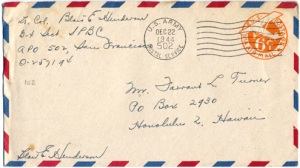 Lt. Col. Blair E. Henderson
Det. JPBC
APO 502, San Francisco
O-457194
U.S. ARMY
DEC 22
1944
502
POSTAL SERVICE
6¢
AIR MAIL
Mr. Farrant L. Turner
PO Box 2930
Honolulu 2, Hawaii
Blair E Henderson